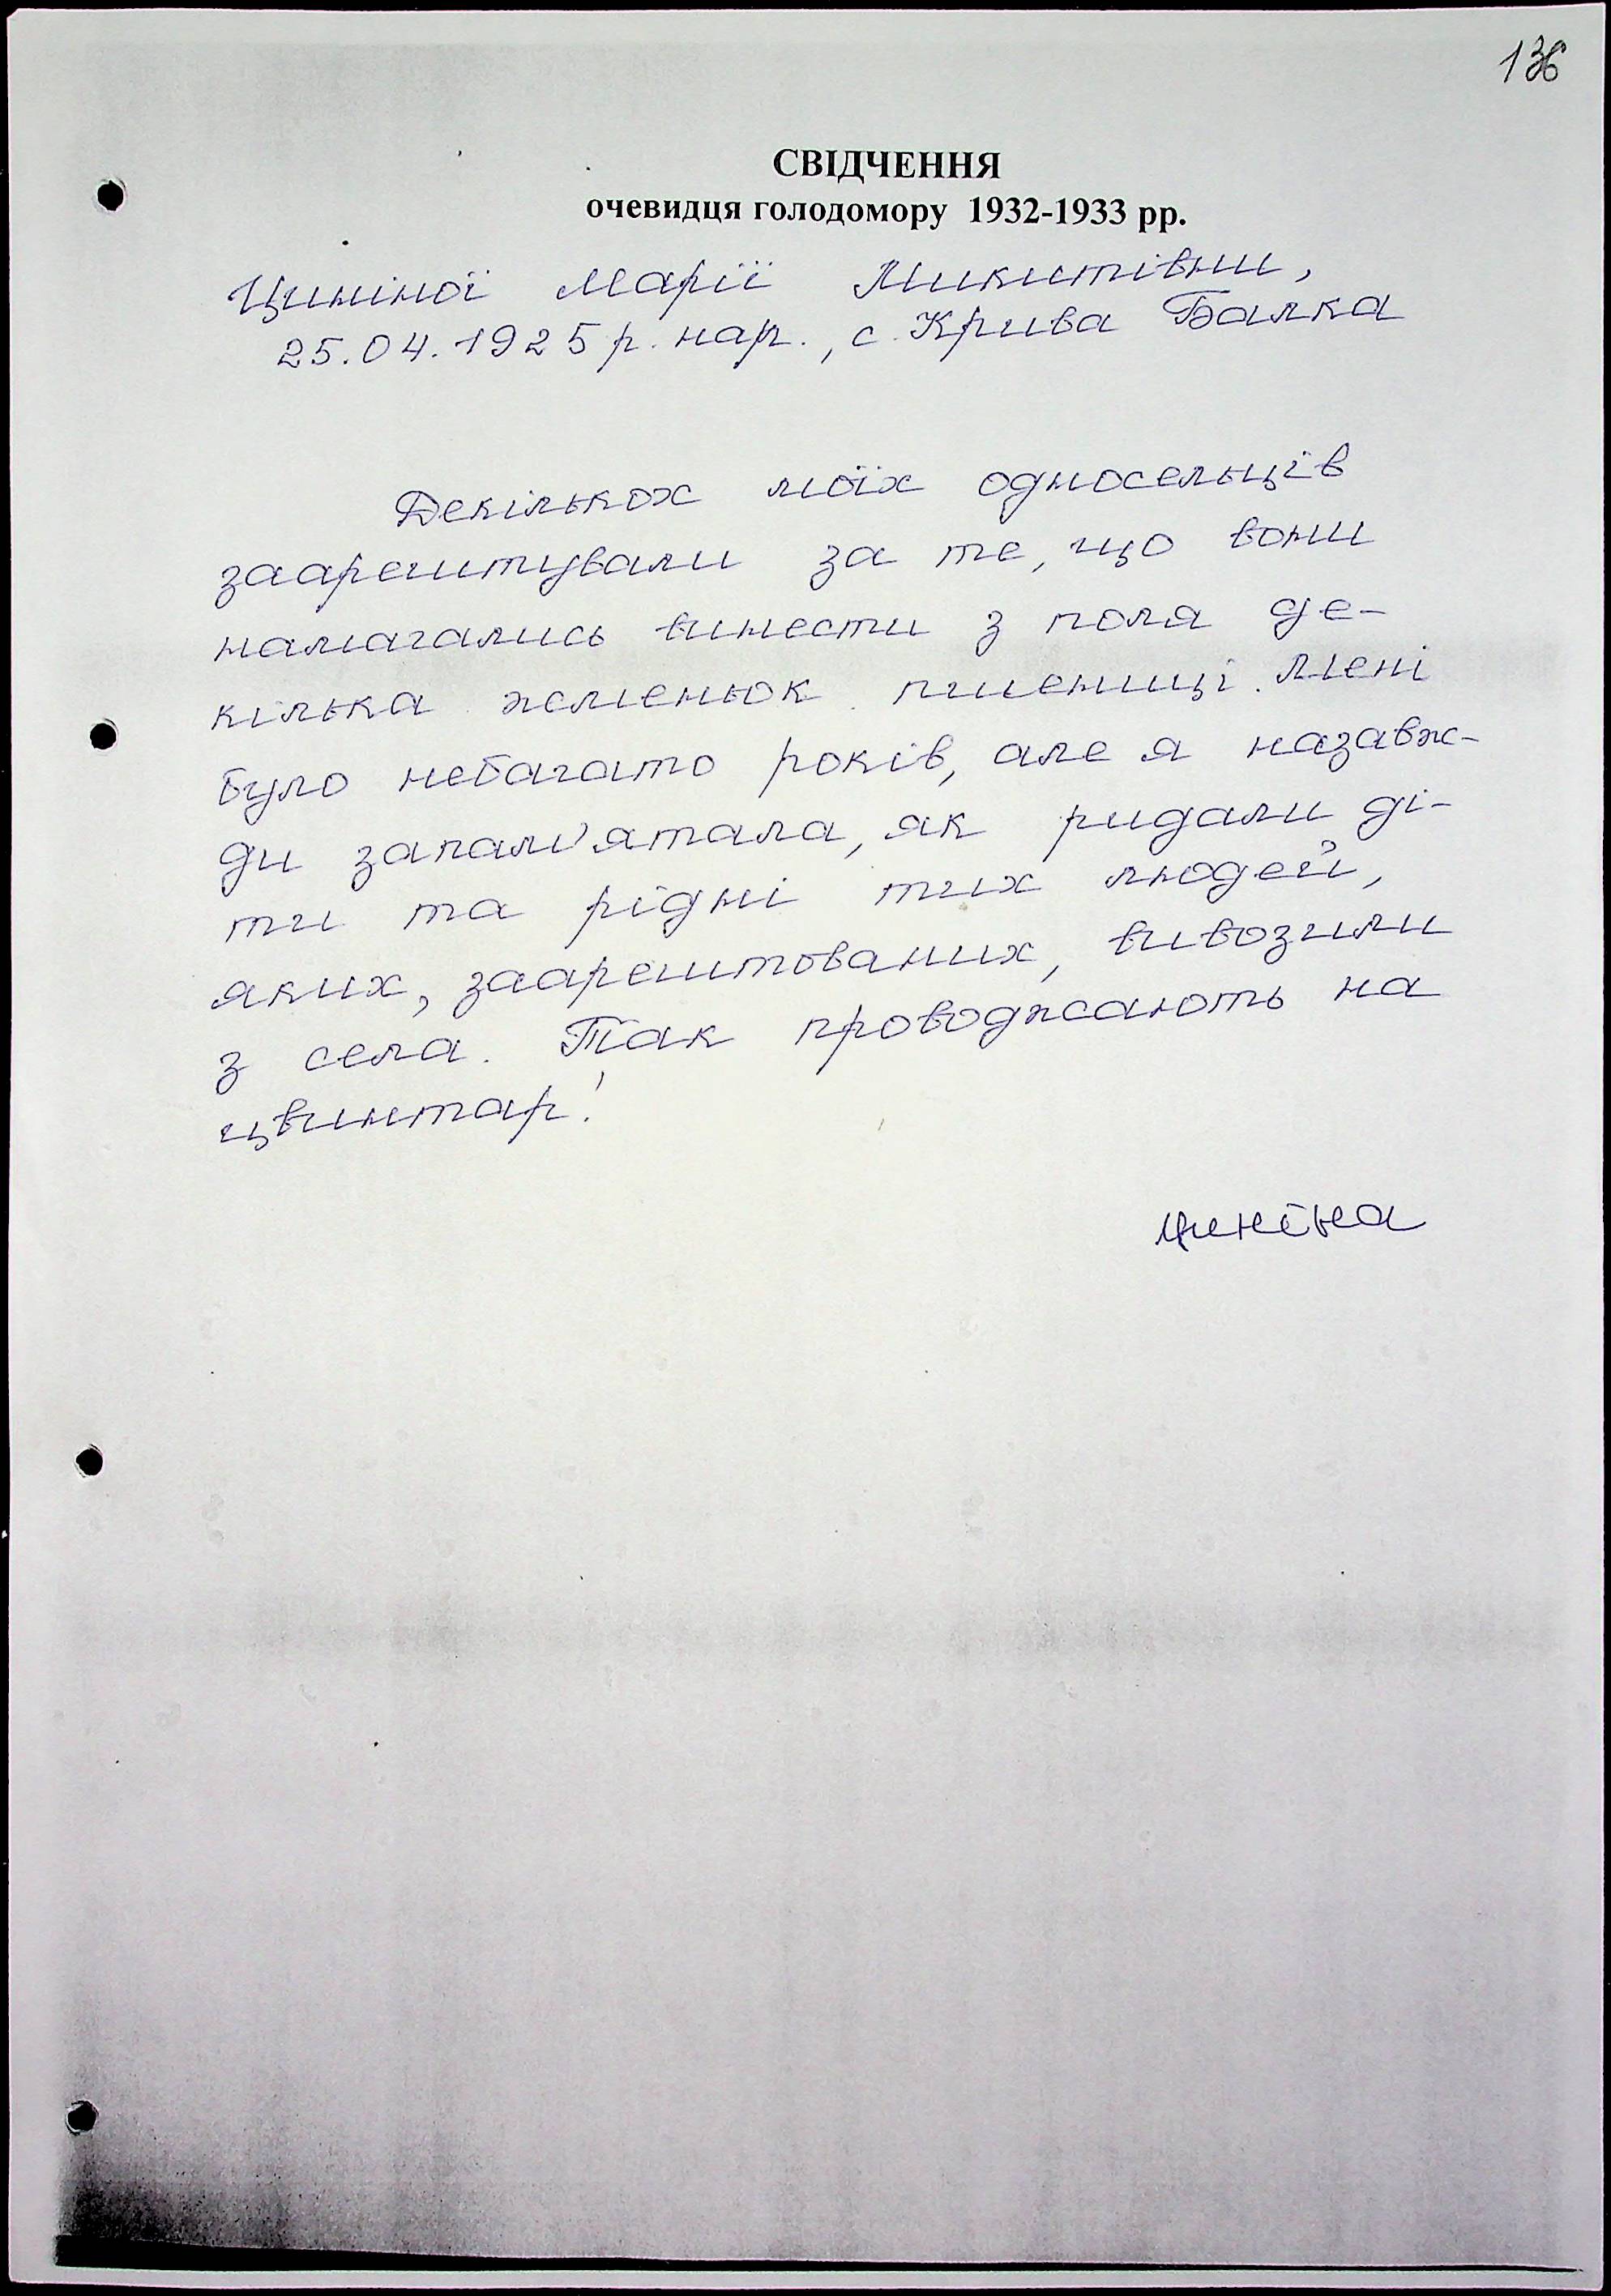 136
СВІДЧЕННЯ
очевидця голодомору 1932-1933 рр.
Циніної Марії Микитівни,
25.04.1925 р. нар., с. Крива Балка
Декількох моїх односельців
заарештували за те, що вони
намагались винести з поля де-
кілька жменьок пшениці. Мені
було небагато років, але я назавж-
ди запам'ятала, як ридали ді-
ти та рідні тих людей,
яких, заарештованих, вивозили
з села. Так проводжають на
цвинтар!
Циніна